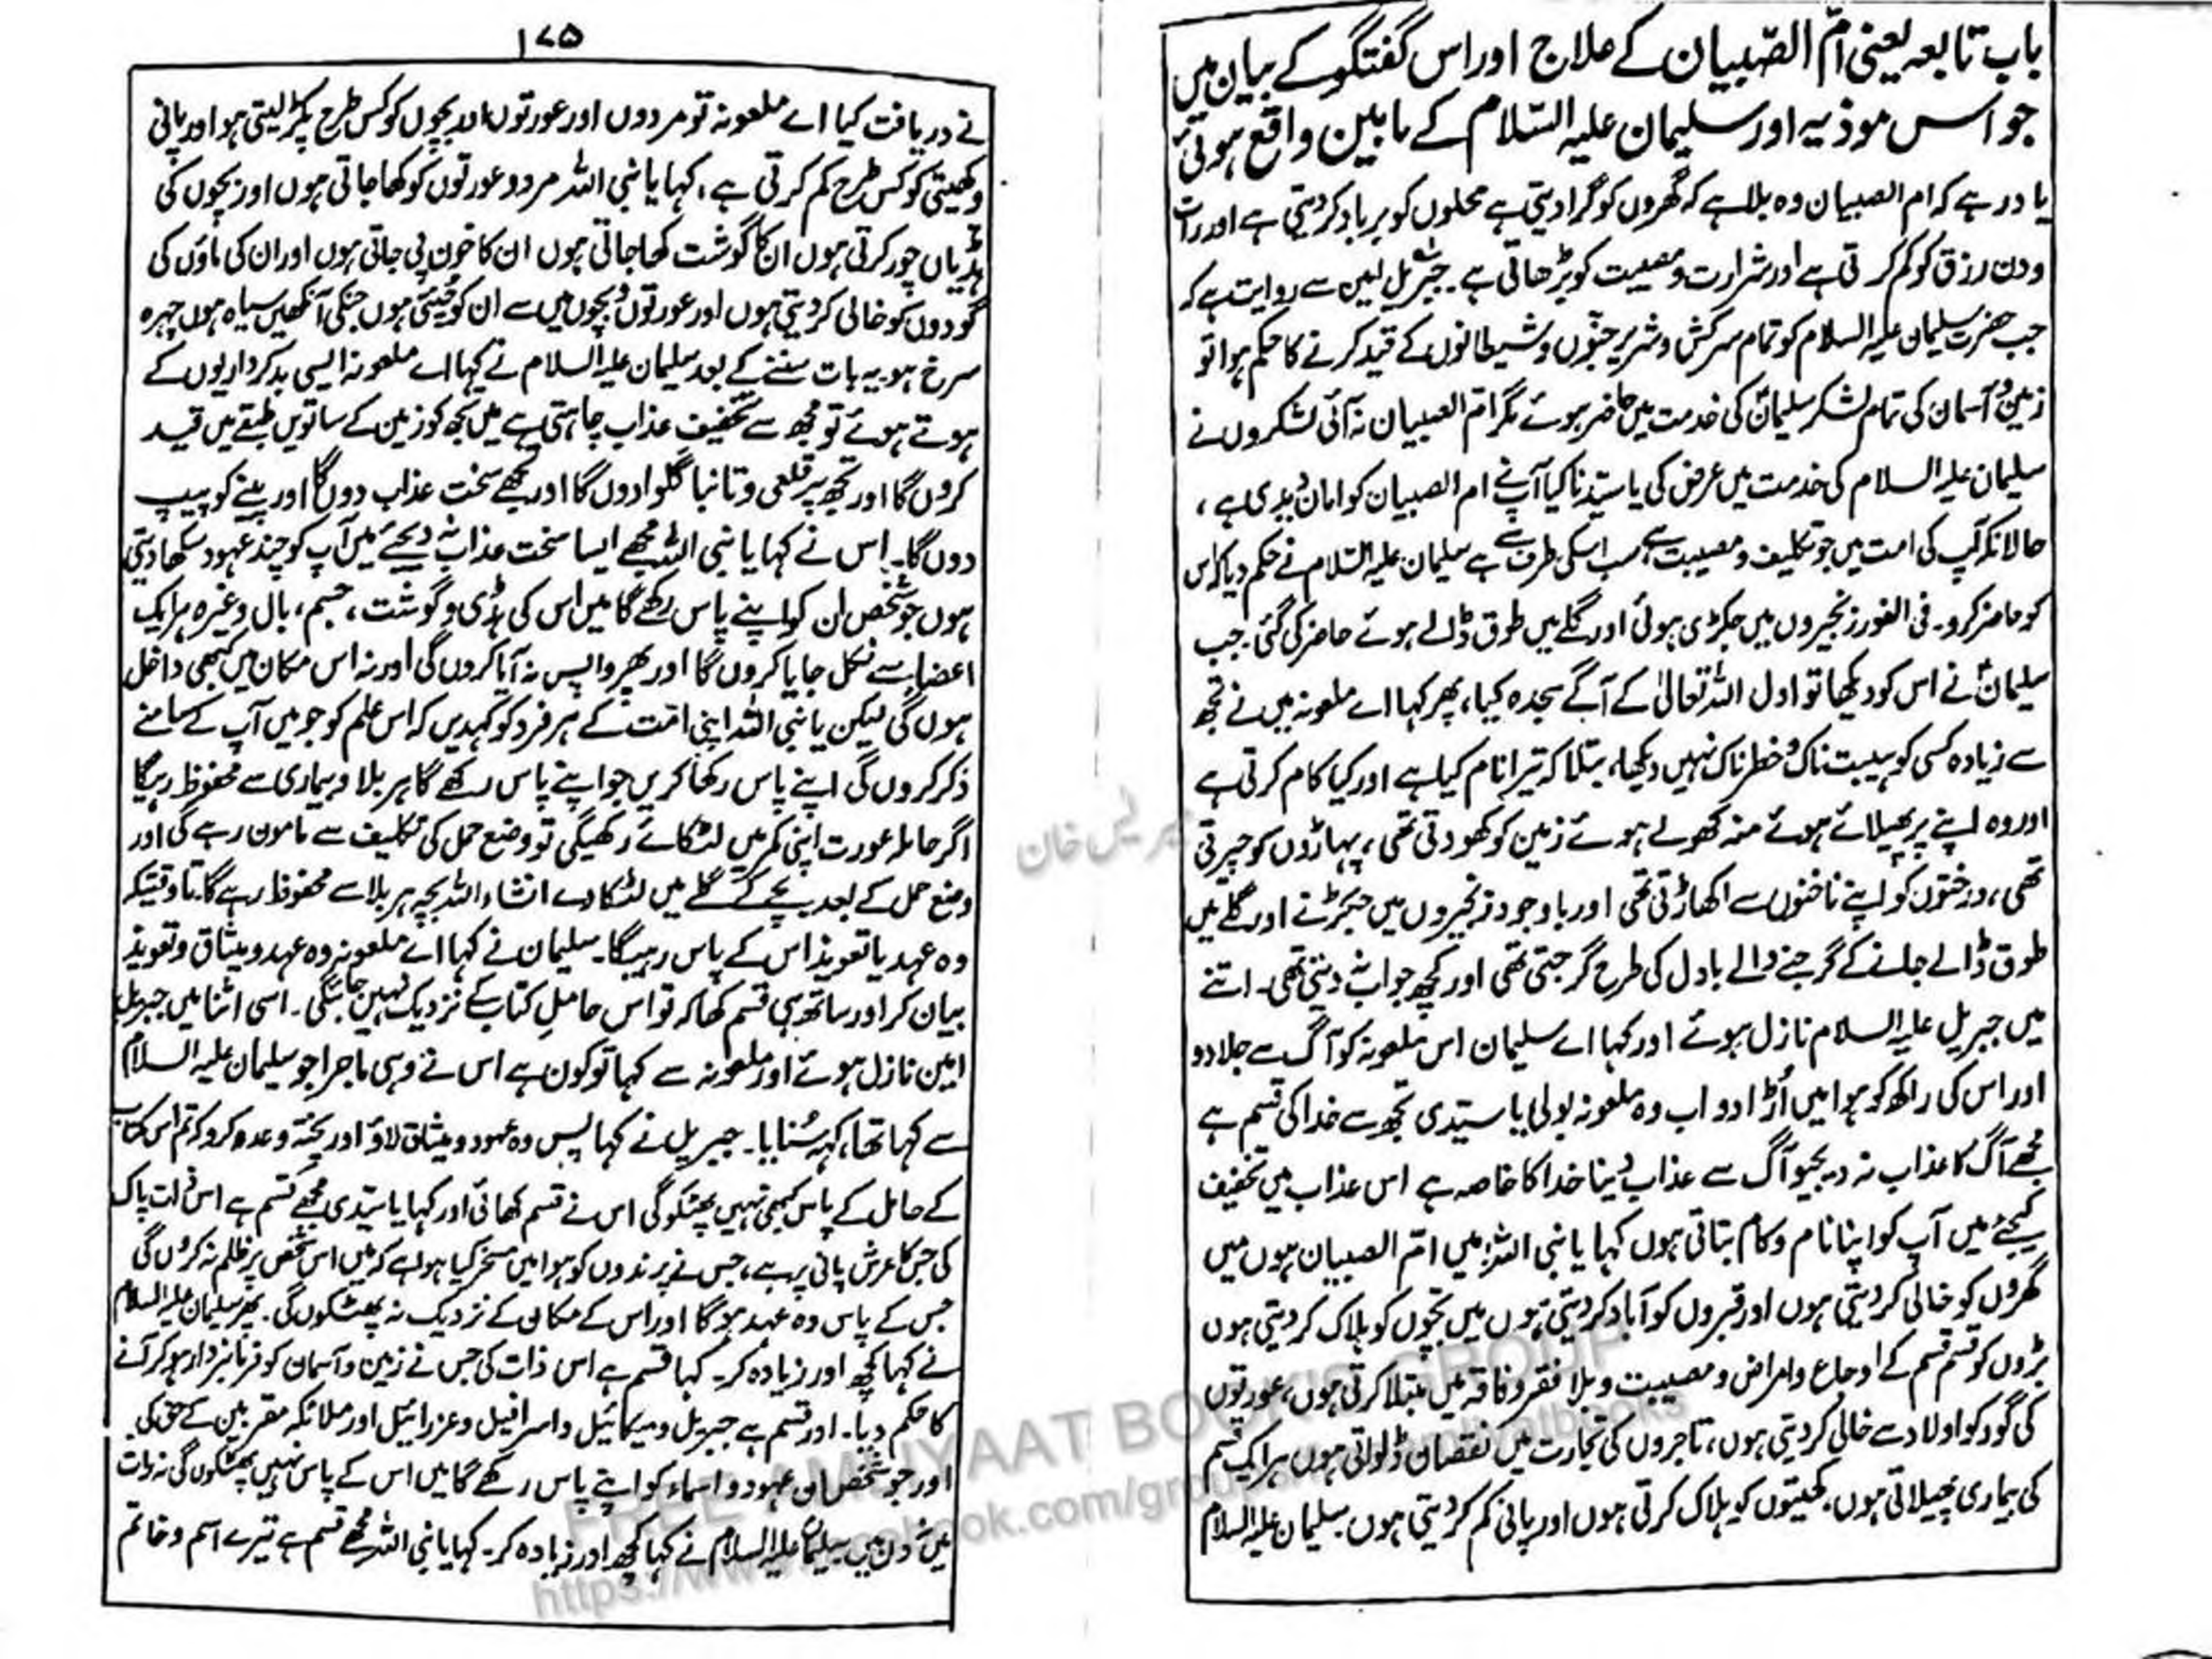 باب تابعہ یعنی امّ الصّبیان کے علاج اور اس گفتگو کے بیان میں
جو اس موذیہ اور سلیمان علیہ السّلام کے مابین واقع ہوئی
یاد رہے کہ ام الصبیان وہ بلا ہے کہ گھروں کو گرا دیتی ہے محلوں کو برباد کر دیتی ہے اور رات
و دن رزق کو کم کرتی ہے اور شرارت و مصیبت کو بڑھاتی ہے۔ جبریل امین سے روایت ہے کہ
جب حضرت سلیمان علیہ السلام کو تمام سرکش و شریر جنّوں و شیطانوں کے قید کرنے کا حکم ہوا تو
زمین و آسمان کی تمام لشکر سلیمانؑ کی خدمت میں حاضر ہوئے مگر ام الصبیان نہ آئی لشکروں نے
سلیمان علیہ السلام کی خدمت میں عرض کی یا سیّدنا کیا آپ نے ام الصبیان کو امان دیدی ہے،
حالانکہ آپ کی امت میں جو تکلیف و مصیبت ہے سب اسکی طرف سے ہے سلیمان علیہ السّلام نے حکم دیا کہ اس
کو حاضر کرو۔ فی الفور زنجیروں میں جکڑی ہوئی اور گلے میں طوق ڈالے ہوئے حاضر کی گئی۔ جب
سلیمانؑ نے اس کو دیکھا تو اول اللہ تعالیٰ کے آگے سجدہ کیا، پھر کہا اے ملعونہ میں نے تجھ
سے زیادہ کسی کو ہیبت ناک و خطرناک نہیں دیکھا، بتلا کہ تیرا نام کیا ہے اور کیا کام کرتی ہے
اور وہ اپنے پر پھیلائے ہوئے منہ کھولے ہوئے زمین کو کھودتی تھی، پہاڑوں کو چیرتی
تھی، درختوں کو اپنے ناخنوں سے اکھاڑتی تھی اور باوجود زنجیروں میں جکڑنے اور گلے میں
طوق ڈالے جانے کے گرجنے والے بادل کی طرح گرجتی تھی اور کچھ جواب نہ دیتی تھی۔ اتنے
میں جبریل علیہ السلام نازل ہوئے اور کہا اے سلیمان اس ملعونہ کو آگ سے جلا دو
اور اس کی راکھ کو ہوا میں اُڑا دو اب وہ ملعونہ بولی یا سیّدی تجھ سے خدا کی قسم ہے
مجھے آگ کا عذاب نہ دیجیو آگ سے عذاب دینا خدا کا خاصہ ہے اس عذاب میں تخفیف
کیجئے میں آپ کو اپنا نام و کام بتاتی ہوں کہا یا نبی اللہ میں امّ الصبیان ہوں میں
گھروں کو خالی کر دیتی ہوں اور قبروں کو آباد کر دیتی ہوں میں بچّوں کو ہلاک کر دیتی ہوں
بڑوں کو قسم قسم کے اوجاع و امراض و مصیبت و بلا فقر و فاقہ میں مبتلا کرتی ہوں، عورتوں
کی گود کو اولاد سے خالی کر دیتی ہوں، تاجروں کی تجارت میں نقصان ڈلواتی ہوں ہر ایک قسم
کی بیماری پھیلاتی ہوں۔ کھیتوں کو ہلاک کرتی ہوں اور پانی کم کر دیتی ہوں۔ سلیمان علیہ السلام
۱۷۵
نے دریافت کیا اے ملعونہ تو مردوں اور عورتوں اور بچوں کو کس طرح پکڑ لیتی ہو اور پانی
و کھیتی کو کس طرح کم کرتی ہے، کہا یا نبی اللہ مرد و عورتوں کو کھا جاتی ہوں اور بچوں کی
ہڈیاں چور کرتی ہوں ان کا گوشت کھا جاتی ہوں ان کا خون پی جاتی ہوں اور ان کی ماؤں کی
گودوں کو خالی کر دیتی ہوں اور عورتوں و بچوں میں سے ان کو چنتی ہوں جنکی آنکھیں سیاہ ہوں چہرہ
سرخ ہو۔ یہ بات سننے کے بعد سلیمان علیہ السلام نے کہا اے ملعونہ ایسی بد کرداریوں کے
ہوتے ہوئے تو مجھ سے تخفیف عذاب چاہتی ہے میں تجھ کو زمین کے ساتویں طبقے میں قید
کروں گا اور تجھ پر قلعی و تانبا گلوا دوں گا اور تجھے سخت عذاب دوں گا اور پینے کو پیپ
دوں گا۔ اس نے کہا یا نبی اللہ مجھے ایسا سخت عذاب نہ دیجئے میں آپ کو چند عہود سکھا دیتی
ہوں جو شخص ان کو اپنے پاس رکھے گا میں اس کی ہڈی و گوشت، جسم، بال وغیرہ ہر ایک
اعضاء سے نکل جایا کروں گا اور پھر واپس نہ آیا کروں گی اور نہ اس مکان میں کبھی داخل
ہوں گی لیکن یا نبی اللہ اپنی امّت کے ہر فرد کو کہدیں کہ اس علم کو جو میں آپ کے سامنے
ذکر کروں گی اپنے پاس رکھا کریں جو اپنے پاس رکھے گا ہر بلا و بیماری سے محفوظ رہیگا
اگر حاملہ عورت اپنی کمر میں لٹکائے رکھیگی تو وضع حمل کی تکلیف سے مامون رہے گی اور
وضع حمل کے بعد بچے کے گلے میں لٹکا دے انشاء اللہ بچہ ہر بلا سے محفوظ رہے گا۔ تاوقتیکہ
وہ عہد یا تعویذ اس کے پاس رہیگا۔ سلیمان نے کہا اے ملعونہ وہ عہد و میثاق و تعویذ
بیان کر اور ساتھ ہی قسم کھا کہ تو اس حامل کتاب کے نزدیک نہیں جائیگی۔ اسی اثنا میں جبریل
امین نازل ہوئے اور ملعونہ سے کہا تو کون ہے اس نے وہی ماجرا جو سلیمان علیہ السلام
سے کہا تھا، کہہ سُنایا۔ جبریل نے کہا پس وہ عہود و میثاق لاؤ اور پختہ وعدہ کرو کہ تم اس کتاب
کے حامل کے پاس کبھی نہیں پھٹکوگی اس نے قسم کھائی اور کہا یا سیّدی مجھے قسم ہے اس ذات پاک
کی جس کا عرش پانی پر ہے، جس نے پرندوں کو ہوا میں مسخر کیا ہوا ہے کہ میں اس شخص پر ظلم نہ کروں گی
جس کے پاس وہ عہد ہوگا اور اس کے مکان کے نزدیک نہ پھٹکوں گی۔ پھر سلیمان علیہ السلام
نے کہا کچھ اور زیادہ کر۔ کہا قسم ہے اس ذات کی جس نے زمین و آسمان کو فرمانبردار ہو کر آنے
کا حکم دیا۔ اور قسم ہے جبریل و میکائیل و اسرافیل و عزرائیل اور ملائکہ مقربین کے حق کی۔
اور جو شخص ان عہود و اسماء کو اپنے پاس رکھے گا میں اس کے پاس نہیں پھٹکوں گی نہ رات
میں نہ دن میں سلیمان علیہ السلام نے کہا کچھ اور زیادہ کر۔ کہا یا نبی اللہ مجھے قسم ہے تیرے اسم و خاتم
FREE AMLIYAAT BOOKS GROUP